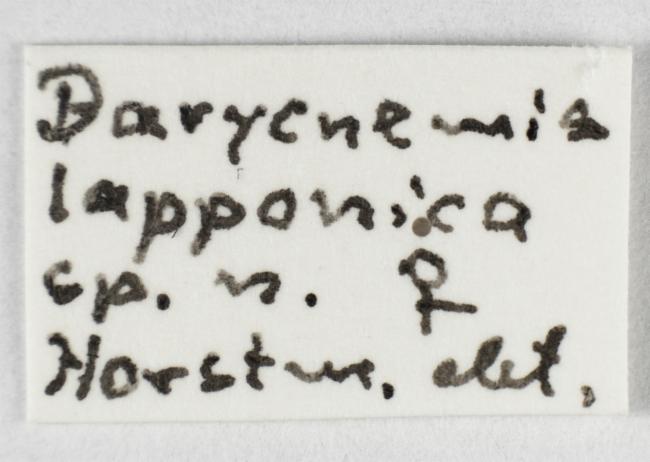 Barycnemis
lapponica
sp. n. ♀
Horstm. det.